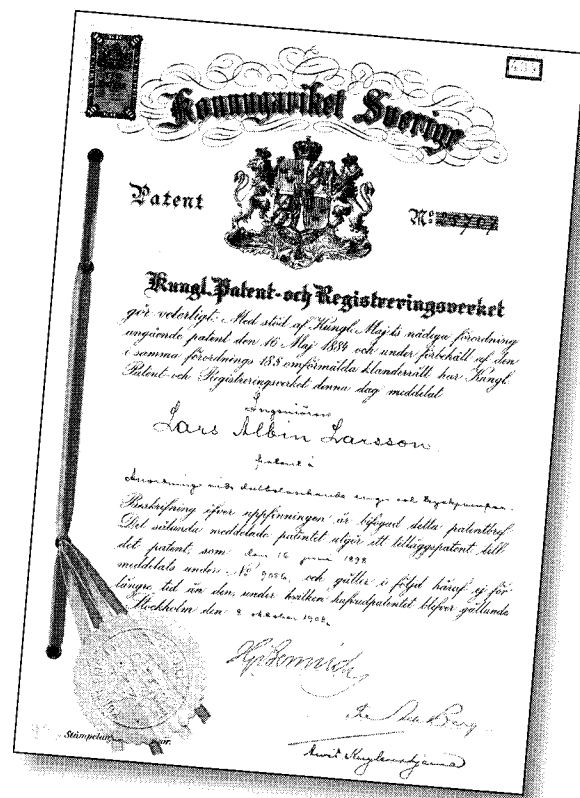 Konungariket Sverige
Patent
Nº 25767
Kungl. Patent- och Registreringsverket
gör veterligt: Med stöd af Kungl. Maj:ts nådiga förordning
angående patent den 16 Maj 1884 och under förbehåll af den
i samma förordnings 18 § omförmälda klanderrätt har Kungl.
Patent och Registreringsverket denna dag meddelat
Ingeniören
Lars Albin Larsson
patent å
Anordning vid dubbelverkande sug- och tryckpumpar.
Beskrifning öfver uppfinningen är bifogad detta patentbref.
Det sålunda meddelade patentet utgör ett tilläggspatent till
det patent, som den 16 juni 1898
meddelats under Nº och gäller i följd häraf ej för
längre tid än den, under hvilken hufvudpatentet blifver gällande
Stockholm den 8 oktober 1908.
Berg